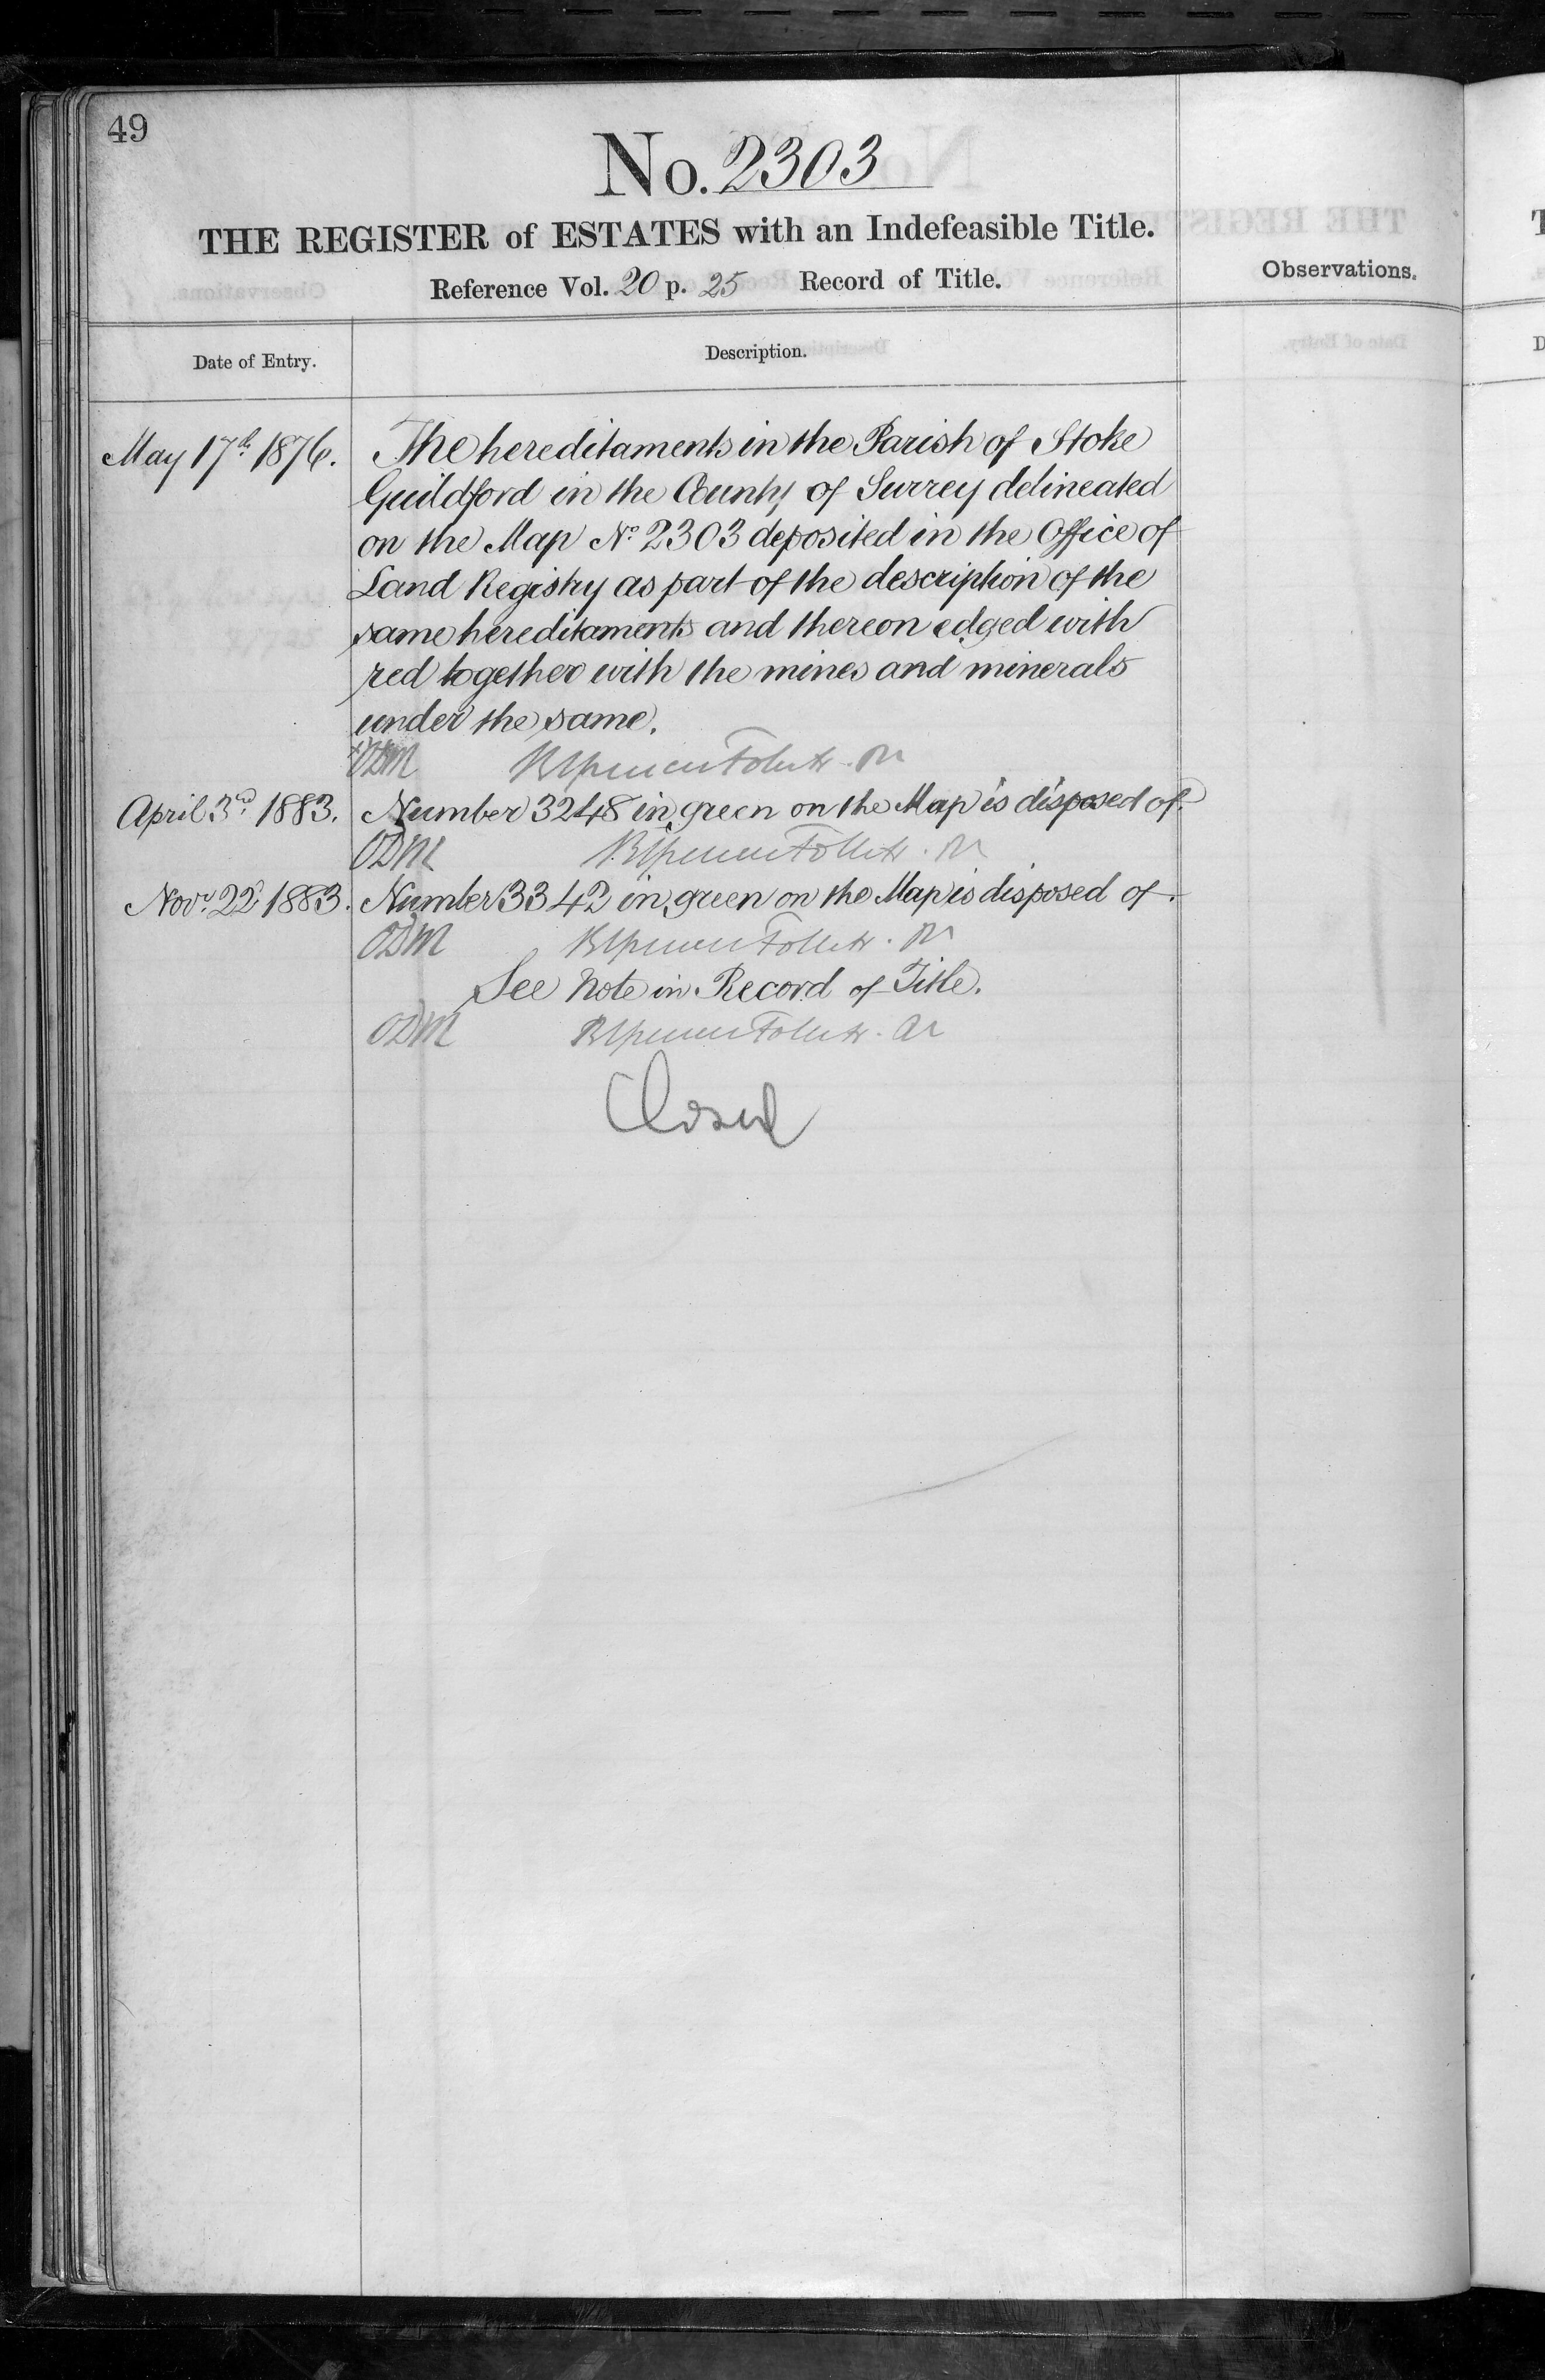 49
No. 2303
THE REGISTER of ESTATES with an Indefeasible Title.
Reference Vol. 20 p. 25 Record of Title.
Observations.
Date of Entry.
Description.
May 17th 1876.
The hereditaments in the Parish of Stoke
Guildford in the County of Surrey delineated
on the Map No. 2303 deposited in the Office of
Land Registry as part of the description of the
same hereditaments and thereon edged with
red together with the mines and minerals
under the same.
ODM
April 3rd 1883.
Number 3248 in green on the Map is disposed of.
ODM
Novr. 22d 1883.
Number 3342 in green on the Map is disposed of.
ODM
See Note in Record of Title.
ODM
Closed